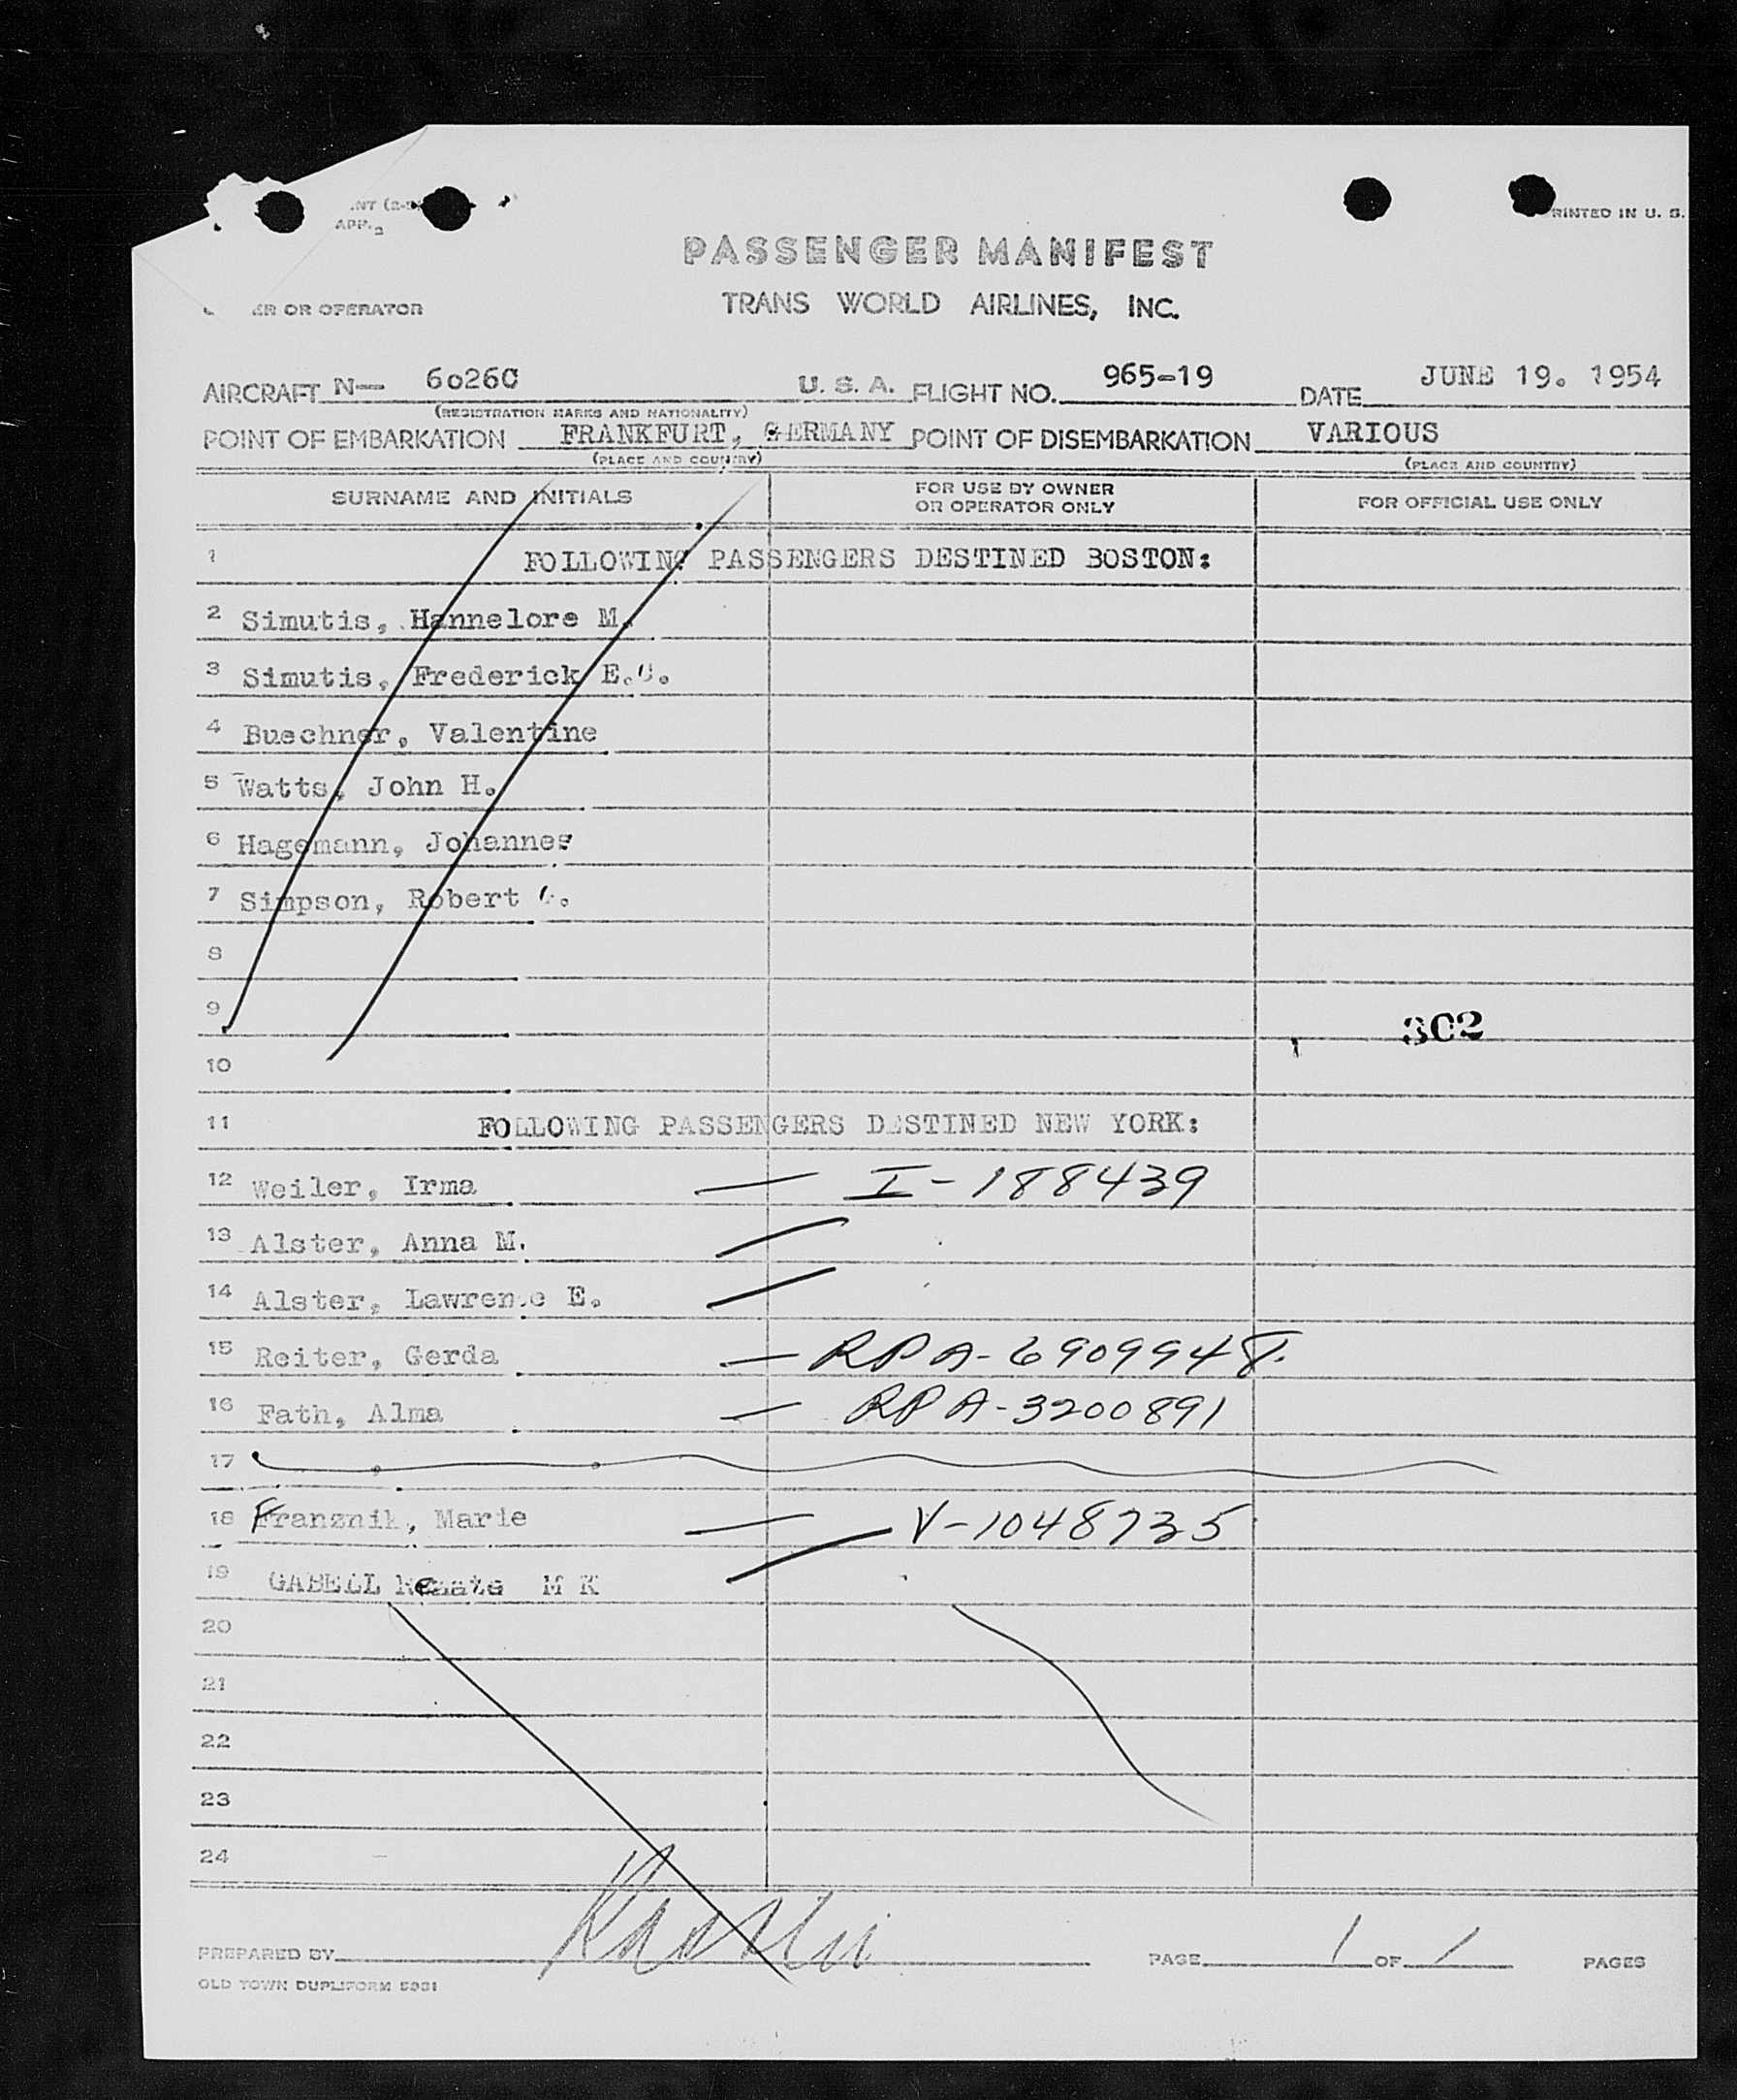 PRINTED IN U. S.
PASSENGER MANIFEST
OR OPERATOR TRANS WORLD AIRLINES, INC.
AIRCRAFT N— 6026C U. S. A. FLIGHT NO. 965-19 DATE JUNE 19. 1954
(REGISTRATION MARKS AND NATIONALITY)
POINT OF EMBARKATION FRANKFURT, GERMANY POINT OF DISEMBARKATION VARIOUS
(PLACE AND COUNTRY) (PLACE AND COUNTRY)
SURNAME AND INITIALS FOR USE BY OWNER OR OPERATOR ONLY FOR OFFICIAL USE ONLY
1 FOLLOWING PASSENGERS DESTINED BOSTON:
2 Simutis, Hannelore M.
3 Simutis, Frederick E.C.
4 Buschner, Valentine
5 Watts, John H.
6 Hagemann, Johannes
7 Simpson, Robert
8
9
302
10
11 FOLLOWING PASSENGERS DESTINED NEW YORK:
12 Weiler, Irma — I-188439
13 Alster, Anna M.
14 Alster, Lawrence E.
15 Reiter, Gerda — RP A-6909948
16 Fath, Alma — RP A-3200891
17
18 Franznik, Marie — V-1048735
19 GABELL Renate M K
20
21
22
23
24
PREPARED BY PAGE 1 OF 1 PAGES
OLD TOWN DUPLIFORM 5931